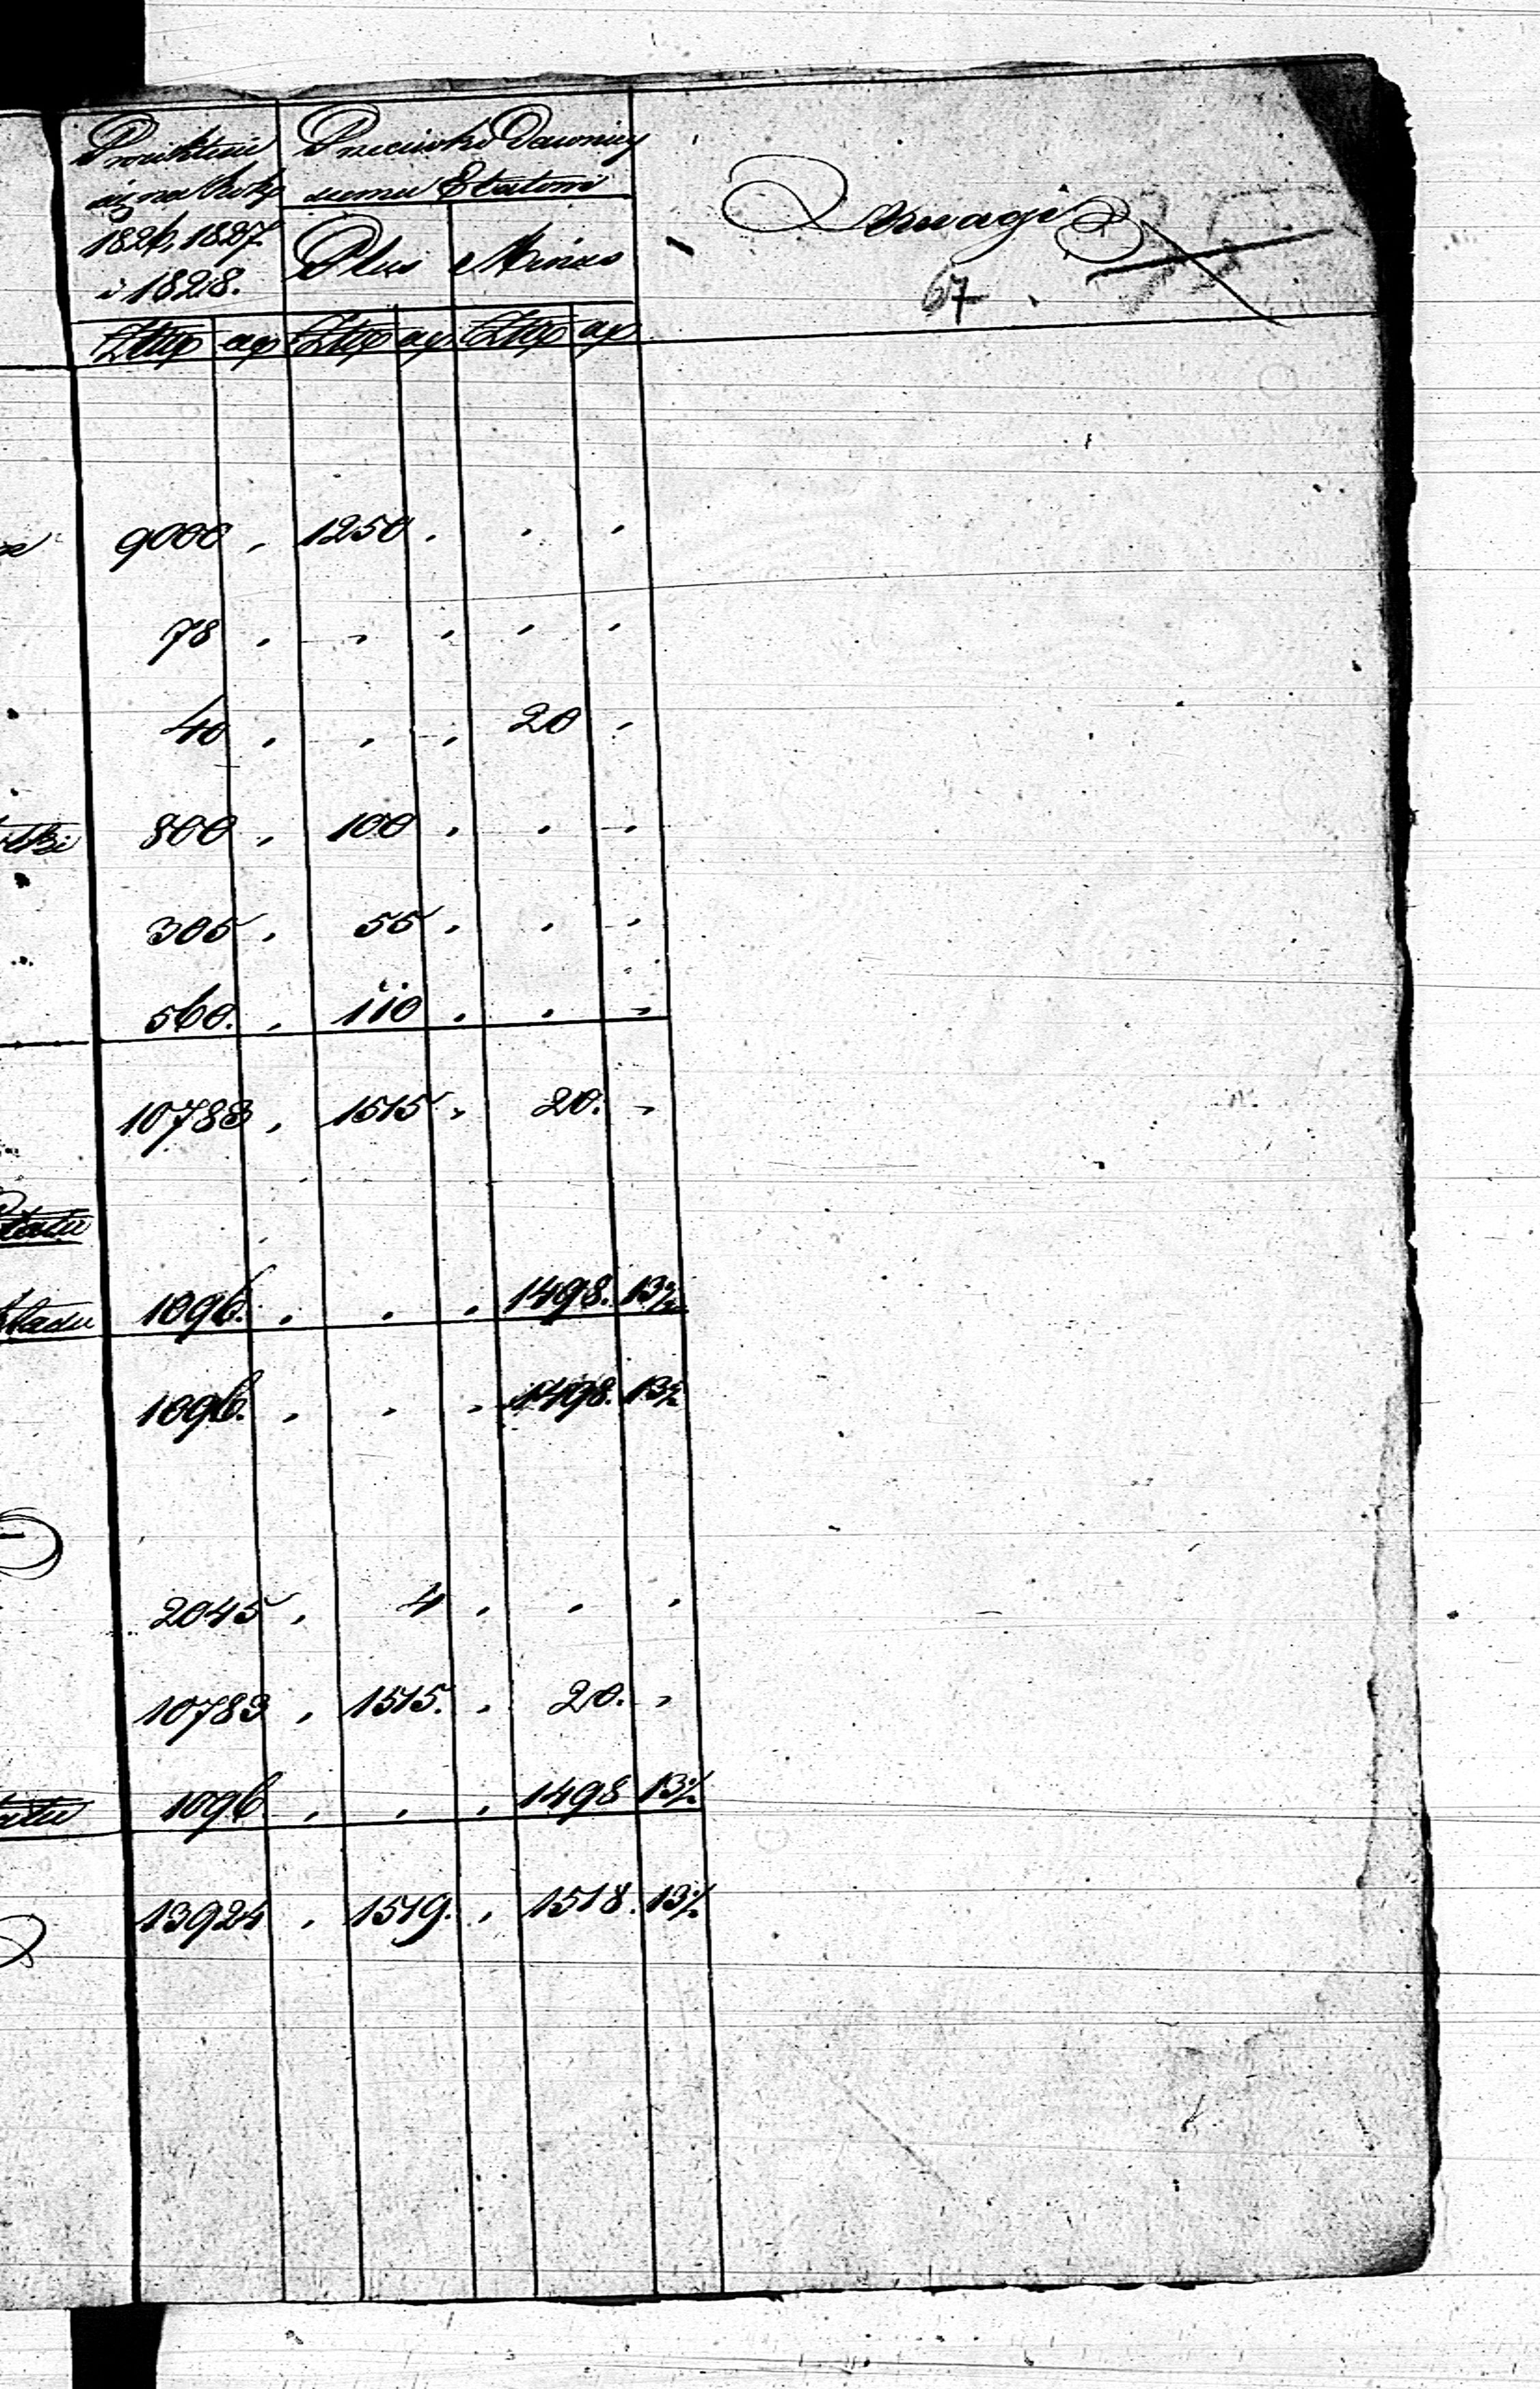 Przeciwko Dawniey
szemu Etatowi
1826, 1827.
i 1828.
Plus Minus
Uwagi
67
Złtp gr Złtp gr Złtp gr
9000 . 1250 . . .
78 . . . . .
40 . . . 20 .
800 . 100 . . .
305 . 55 . . .
560. . 110 . . .
10783 . 1515 . 20. .
1096. . . . 1498. 13½
1096. . . . 1498. 13½
2045 . 4 . . .
10783 . 1515. . 20. .
1096 . . . 1498 13½
13924 . 1519. . 1518. 13½